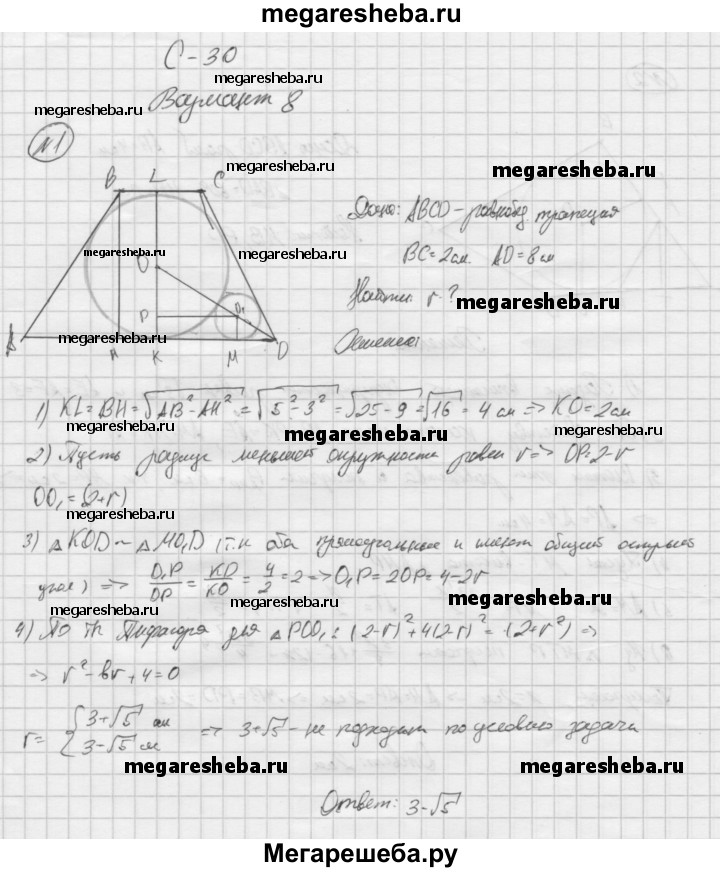 megaresheba.ru
С-30
megaresheba.ru
Вариант 8
megaresheba.ru
№1
megaresheba.ru
megaresheba.ru
B L C
Дано: ABCD - равнобед. трапеция
BC=2см. AD=8см
megaresheba.ru
megaresheba.ru
O
Найти: r-?
megaresheba.ru
P O₁
A H K M D
megaresheba.ru
Решение:
1) KL=BH=√AB²-AH² = √5²-3² = √25-9 = √16 = 4 см => KO=2см
megaresheba.ru
megaresheba.ru
megaresheba.ru
2) Пусть радиус меньшей окружности равен r => OP=2-r
megaresheba.ru
OO₁=(2+r)
3) △KOD ~ △MO₁D (т.к оба прямоугольные и имеют общий острый
угол) => O₁P/OP = KD/KO = 4/2 = 2 => O₁P=2OP=4-2r
megaresheba.ru
megaresheba.ru
4) По th Пифагора для △POO₁: (2-r)²+4(2-r)²=(2+r²) =>
=> r²-6r+4=0
r= {3+√5 см
3-√5 см => 3+√5 - не подходит по условию задачи
megaresheba.ru
megaresheba.ru
Ответ: 3-√5
Мегарешеба.ру